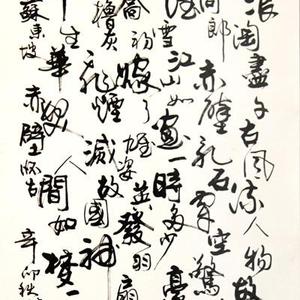 浪淘盡千古風流人物故
周郎赤壁亂石穿空驚
雪江山如畫一時多少豪
喬初嫁了雄姿英發羽扇
櫓灰飛煙滅故國神
生華髮人間如夢一
蘇東坡赤壁懷古辛卯秋